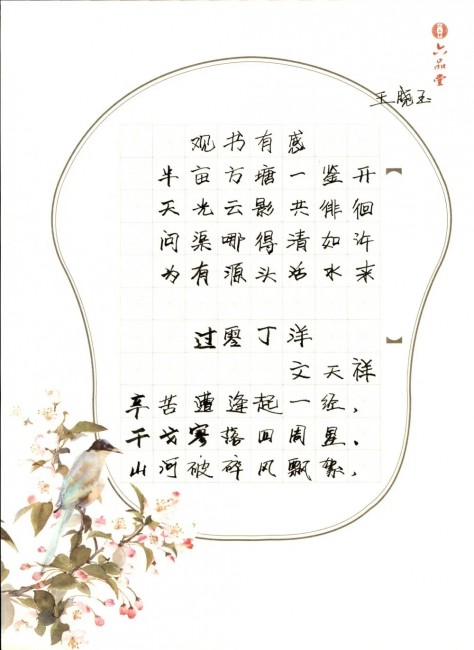 六品堂
王晓玉
观书有感
半亩方塘一鉴开
天光云影共徘徊
问渠哪得清如许
为有源头活水来
过零丁洋
文天祥
辛苦遭逢起一经，
干戈寥落四周星、
山河破碎风飘絮，